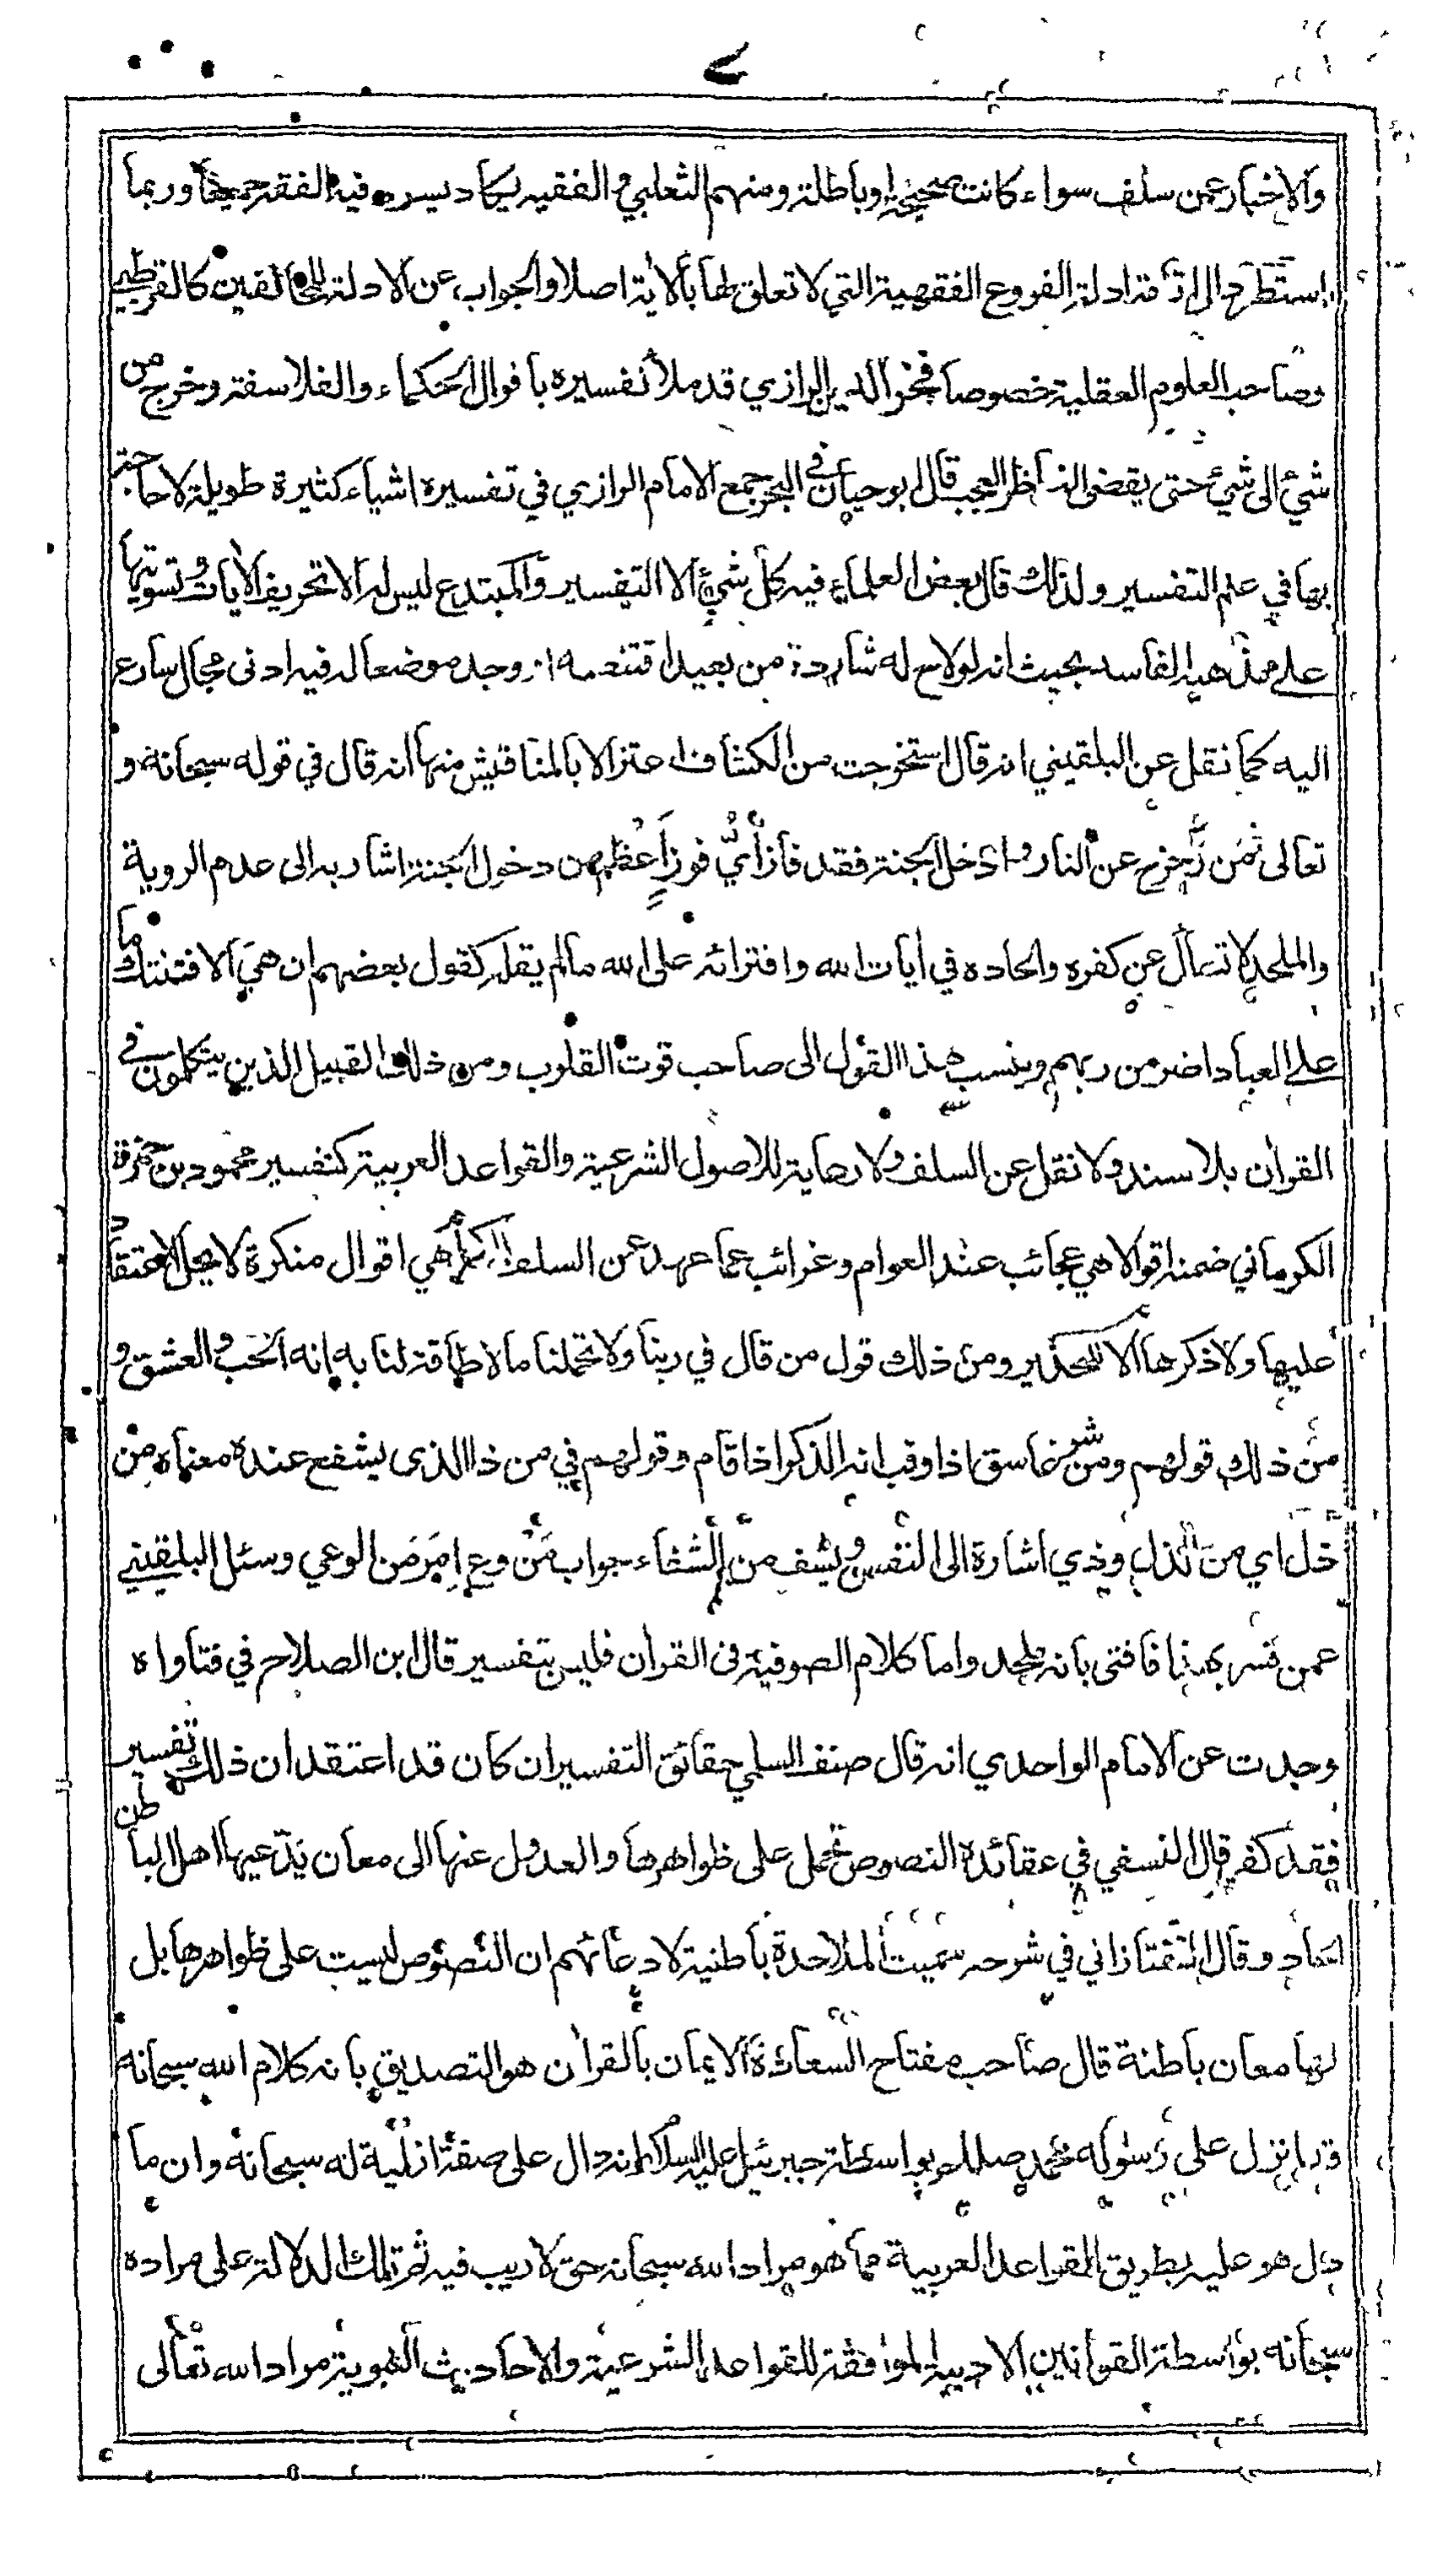 والاخبار عمن سلف سواء كانت صحيحة او باطلة ومنهم الثعلبي والفقيه يكاد يسرد فيه الفقه جميعا وربما
استطرد الى اقامة ادلة الفروع الفقهية التي لا تعلق لها بالاية اصلا والجواب عن الادلة للمخالفين كالقرطبي
وصاحب العلوم العقلية خصوصا فخر الدين الرازي قد ملأ تفسيره باقوال الحكماء والفلاسفة وخرج من
شيئ الى شيئ حتى يقضي الناظر العجب قال ابو حيان في البحر جمع الامام الرازي في تفسيره اشياء كثيرة طويلة لا حاجة
بها في علم التفسير ولذلك قال بعض العلماء فيه كل شيئ الا التفسير والمبتدع ليس له الا تحريف الأيات وتسويتها
على مذهبه الفاسد بحيث انه لو لاح له شاردة من بعيد اقتنصه او وجد موضعا له فيه ادنى مجال سارع
اليه كما نقل عن البلقيني انه قال استخرجت من الكشاف اعتزالا بالمناقيش منها انه قال في قوله سبحانه و
تعالى فمن زحزح عن النار وادخل الجنة فقد فاز أيّ فوز اعظم من دخول الجنة اشار به الى عدم الروية
والملحد لا تسأل عن كفره والحاده في أيات الله وافترائه على الله مالم يقله كقول بعضهم ان هي الا فتنتك ما
على العباد اضر من ربهم وينسب هذا القول الى صاحب قوت القلوب ومن ذلك القبيل الذين يتكلمون في
القرأن بلا سند ولا نقل عن السلف ولا رعاية للاصول الشرعية والقواعد العربية كتفسير محمود بن حمزة
الكرماني ضمنه اقوالا هي عجائب عند العوام وغرائب عما عهد عن السلف بل هي اقوال منكرة لا يحل الاعتقاد
عليها ولا ذكرها الا للتحذير ومن ذلك قول من قال في ربنا ولا تحملنا ما لا طاقة لنا به إنه الحب والعشق و
من ذلك قولهم ومن شر غاسق اذا وقب انه الذكر اذا قام وقولهم في من ذا الذى يشفع عنده معناه من
ذل اي من الذل وذي اشارة الى النفس ويشف من الشفاء جواب مَن وع اِمر من الوعي وسئل البلقيني
عمن فسر بهذا فافتى بانه ملحد واما كلام الصوفية في القرأن فليس بتفسير قال ابن الصلاح في فتاواه
وجدت عن الامام الواحدي انه قال صنف السلمي حقائق التفسير ان كان قد اعتقد ان ذلك تفسير
فقد كفر قال النسفي في عقائده النصوص تحمل على ظواهرها والعدول عنها الى معان يدّعيها اهل الباطن
الحاد وقال التفتازاني في شرحه سميت الملاحدة باطنية لادعائهم ان النصوص ليست على ظواهرها بل
لها معان باطنة قال صاحب مفتاح السعادة الايمان بالقرأن هو التصديق بانه كلام الله سبحانه
قد انزل على رسوله محمد صللم بواسطة جبرئيل عليه السلام وانه دال على صفة ازلية له سبحانه وان ما
دل هو عليه بطريق القواعد العربية مما هو مراد الله سبحانه حق لا ريب فيه ثم تلك الدلالة على مراده
سبحانه بواسطة القوانين الادبية الموافقة للقواعد الشرعية والاحاديث النبوية مراد الله تعالى